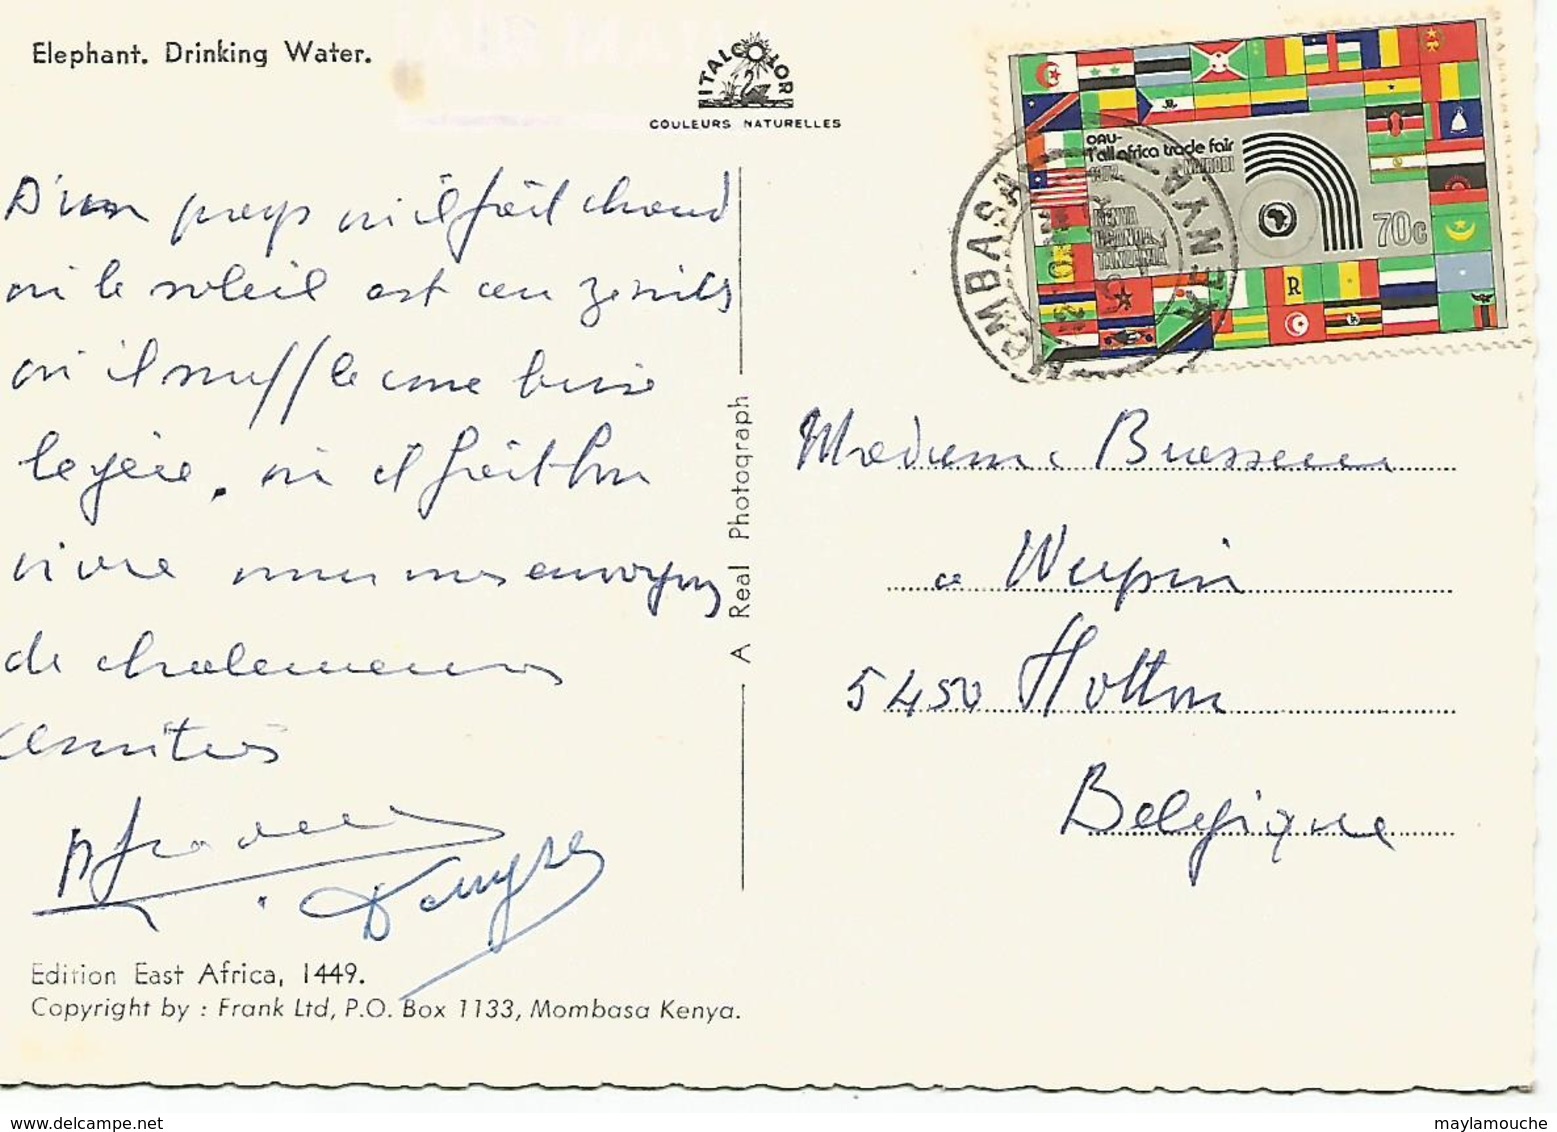 Elephant. Drinking Water.
ITALCOLOR
COULEURS NATURELLES
D'un pays où il fait chaud
où le soleil est au zénith
où il souffle une brise
legère, où il fait bon
vivre nous vous envoyons
de chaleureuses
amitiés
A Real Photograph
OAU-
1st all africa trade fair
1972 NAIROBI
KENYA
UGANDA
TANZANIA
70c
R
MOMBASA
KENYA
Madame
à
5450 Hotton
Belgique
Edition East Africa, 1449.
Copyright by : Frank Ltd, P.O. Box 1133, Mombasa Kenya.
maylamouche